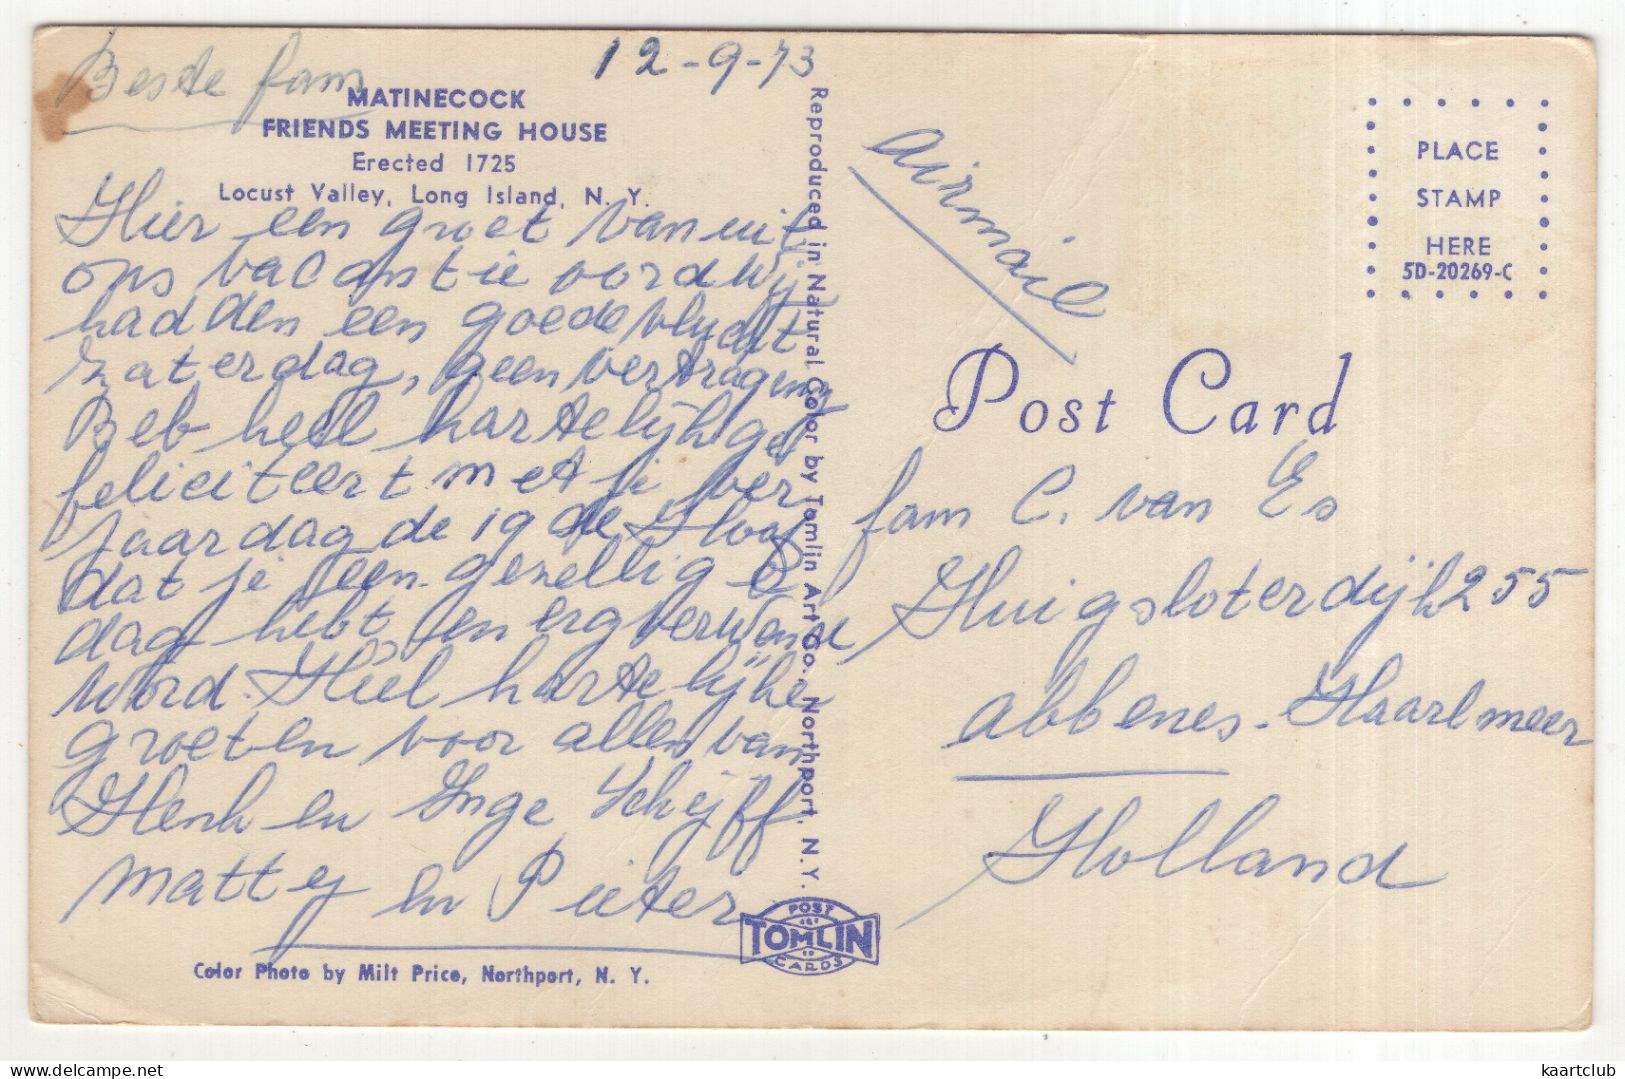 Beste fam
12-9-73
MATINECOCK
FRIENDS MEETING HOUSE
Erected 1725
Locust Valley, Long Island, N. Y.
Hier een groet vanuit
ons vacantie oord wij
hadden een goede vlucht
zaterdag, geen vertraging
Beb heel hartelijk ge
feliciteert met je ver
jaardag de 19de Hoop
dat je een gezellig e
dag hebt, en erg verwend
word. Heel hartelijke
groeten voor allen van
Henk en Inge Schijff
Matty en Pieter
Color Photo by Milt Price, Northport, N. Y.
Reproduced in Natural Color by Tomlin Art Co., Northport, N. Y.
POST
TOMLIN
CARDS
airmail
PLACE
STAMP
HERE
5D-20269-C
Post Card
fam C. van Es
Huigsloterdijk 255
abbenes - Haarlmeer
Holland
kaartclub